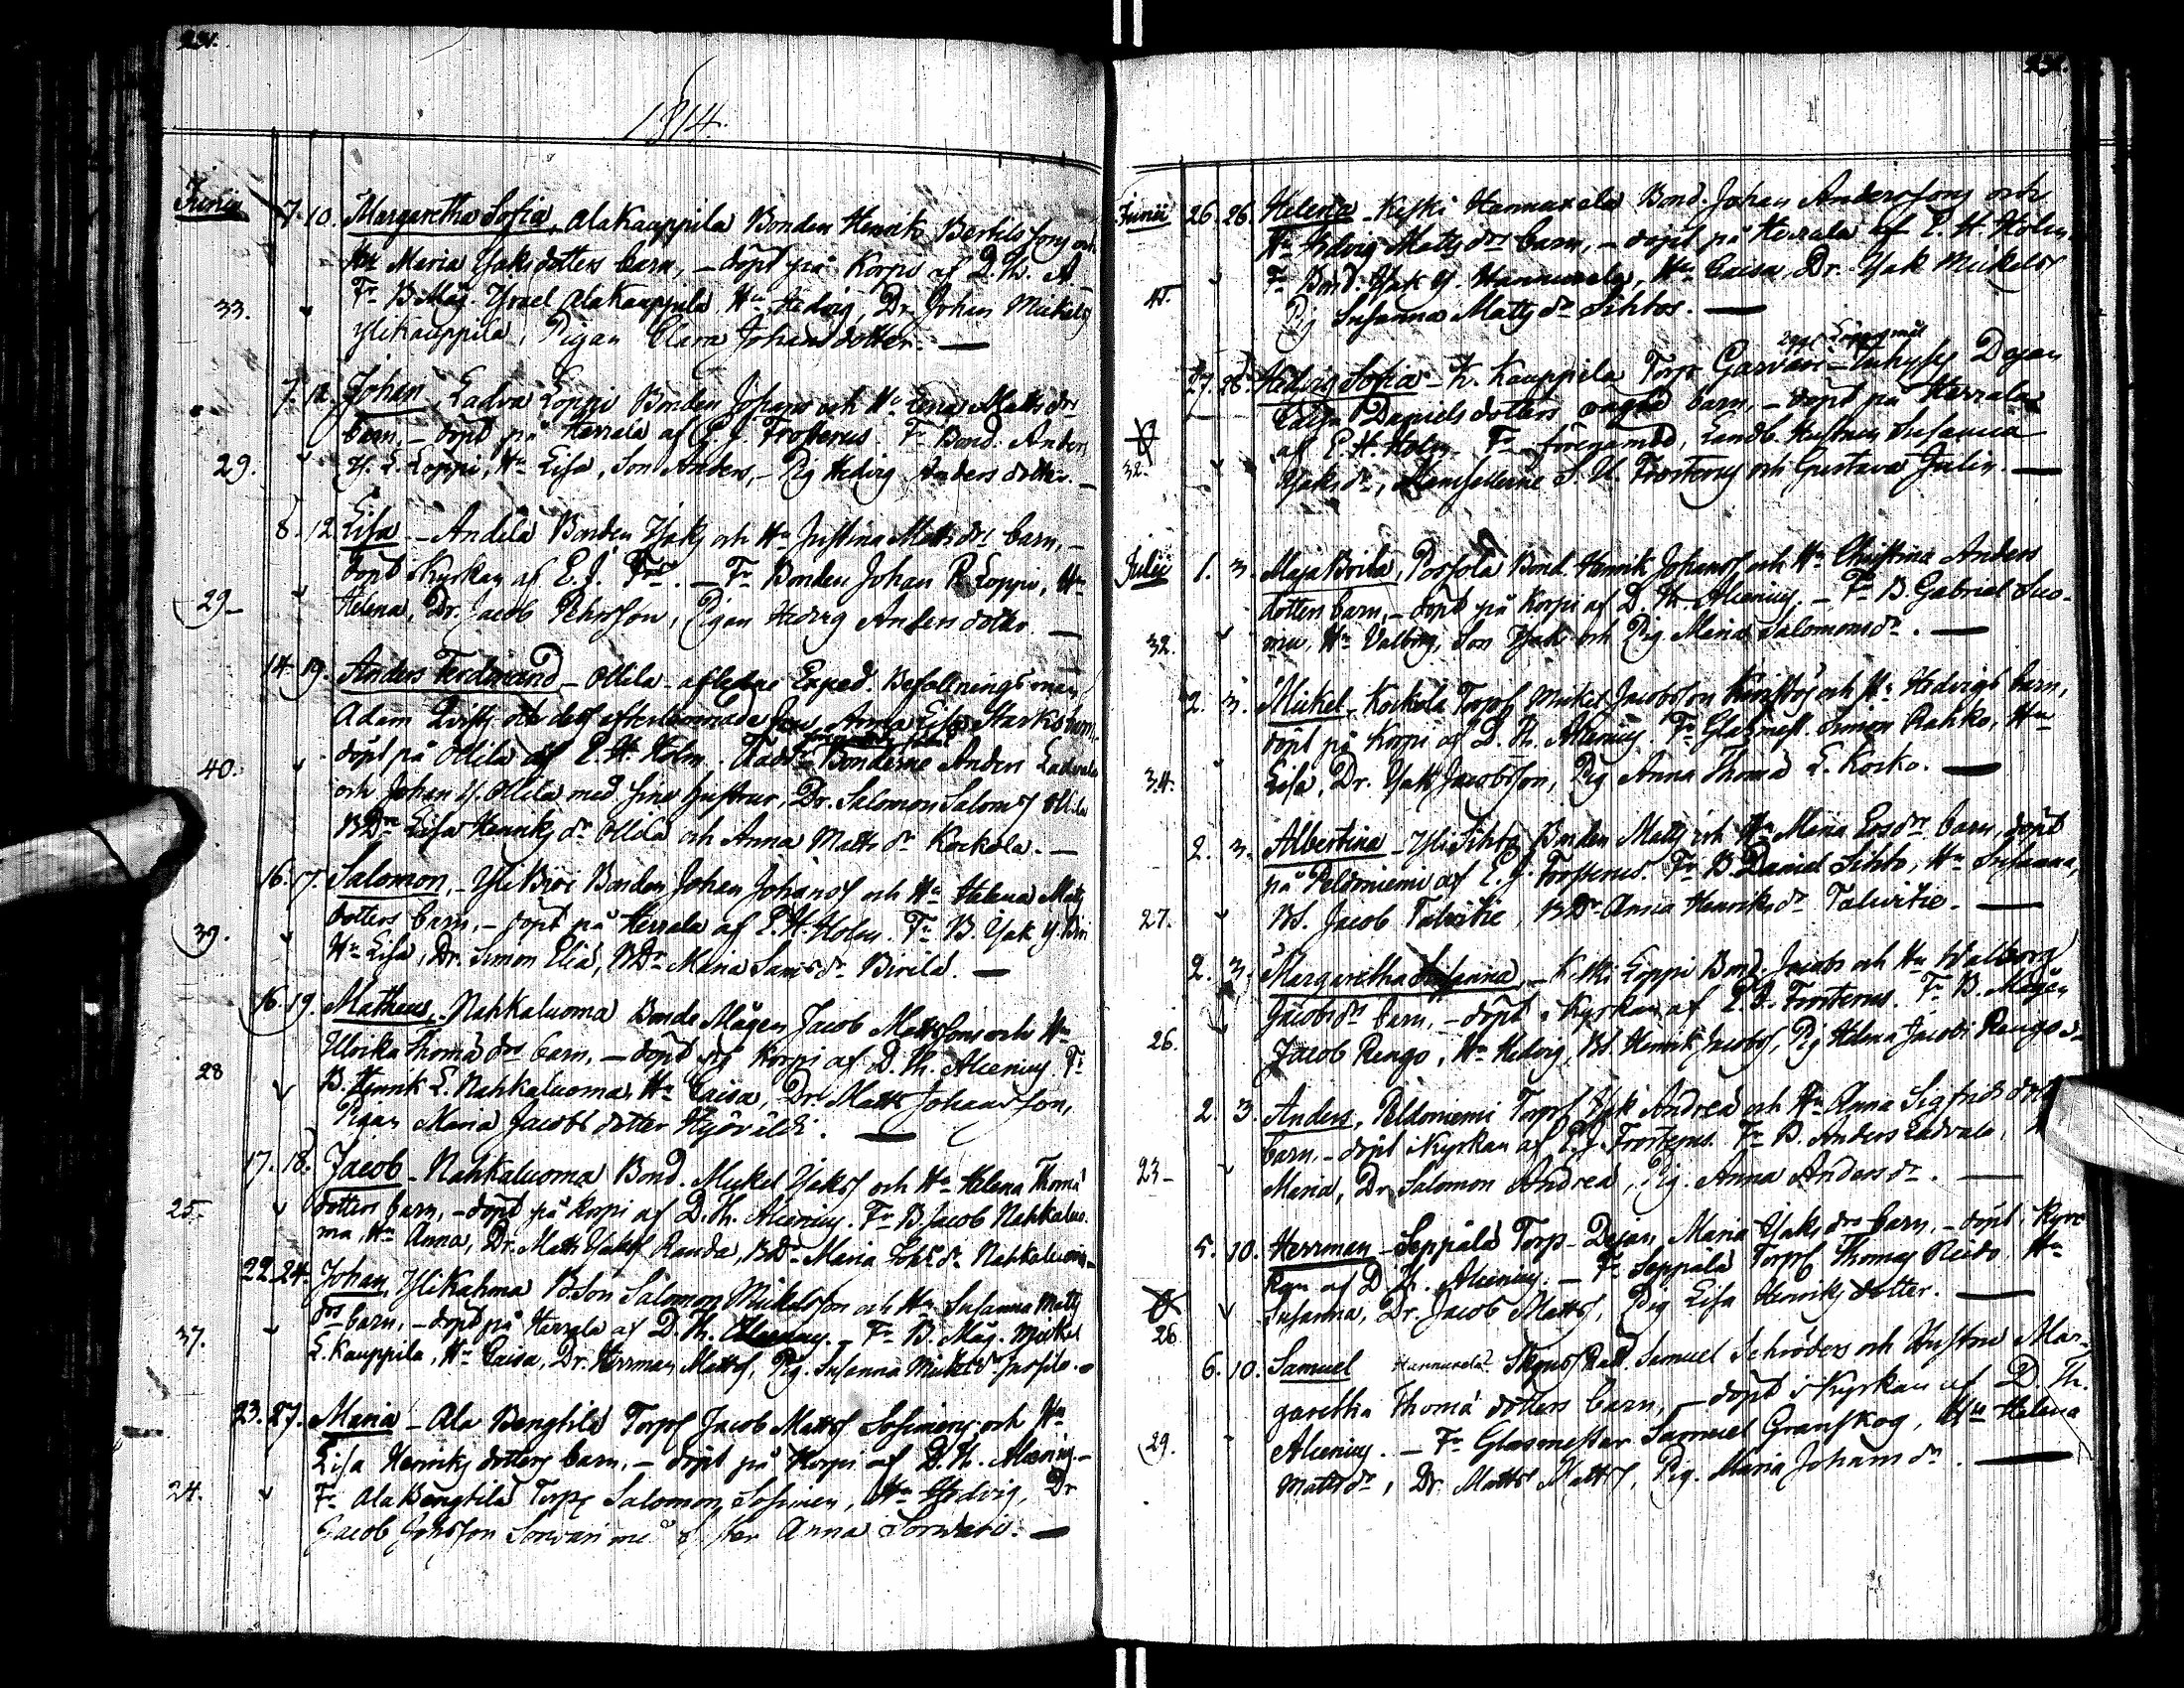 231.
1814.
Junii 7. 10. Margaretha Sofia, Alakauppila Bonden Henrik Bertilssons och
Hu Maria Isaksdotters barn, – döpt på Korpi af D. Th. A.
33. Fr B. Måg Israel Alakauppila, Hu Hedvig, Dr. Johan Mickels
Ylikauppila, Pigan Clara Johansdotter. —
7. 12. Johan, Ladva Loppi Bonden Johans och Hu Lena Matts drs
barn, – döpt på Herrala af E. J. Frosterus. Fr Bond. Anders
29. Y. L. Loppi, Hu Lisa, Son Anders, – Pig Hedvig Andersdotter. –
8. 12. Lisa – Andila Bonden Isaks och Hu Justina Matts drs barn, –
döpt i kyrkan af E. J. Frs. – Fr Bonden Johan R. Loppi, Hu
29– Helena, Dr. Jacob Pehrsson, Pigan Hedvig Andersdotter. —
14. 19. Anders Ferdinand – Ollila – afledne Exped. Befallningsman
Adam Qvists och dess efterlemnade fru Anna Lisa Starks barn,
döpt på Ollila af E. H. Holm. Faddr Bönderne Anders Ladvala
40. och Johan Y. Ollila med sine hustrur, Dr. Salomon Saloms Ollila
BDr Lisa Henriks dr Ollila och Anna Matts dr Kockola. —
16. 17. Salomon, – Yli Biri Bonden Johan Johans och Hu Helena Matts
dotters barn, – döpt på Herrala af E. H. Holm. Fr B. Isak Y. Biri
39. Hu Lisa, Dr. Simon Elia, BDr Maria Sams dr Birila. —
16. 19. Matheus, Nahkaluoma Bonde Mågen Jacob Mattssons och Hu
Ulrika Thomæ drs barn, – döpt på Korpi af D. Th. Alcenius. Fr
28 B. Henrik L. Nahkaluoma, Hu Caisa, Dr. Matts Johansson,
Pigan Maria Jacobsdotter Hyöväldi. —
17. 18. Jacob – Nahkaluoma Bond. Mickel Isaks och Hu Helena Thomæ
25. dotters barn, – döpt på Korpi af D. Th. Alcenius. Fr B. Jacob Nahkaluo-
ma, Hu Anna, Dr. Matts Isaks Randa, BDr Maria dr Nahkaluoma
22. 24. Johan, Ylikahma BSon Salomon Mickelsson och Hu Susanna Matts
drs barn, – döpt på Herrala af D. Th. Alcenius. – Fr B. Måg. Mickel
37. L. Kauppila, Hu Caisa, Dr. Herrman Matts, Pig. Susanna Mickels dr
23. 27. Maria – Ala Bengtila Torp Jacob Matts Sosinens och Hu
Lisa Henriks dotters barn, – döpt på Korpi af D. Th. Alcenius. –
24. Fr Ala Bengtila Torp Salomon Sosinen, Hu Hedvig, Dr
Jacob Johsson Sorvari med Syster Anna Sorvari. —
231.
Junii 26. 26. Helena – Keski Hannuxela Bond. Johan Anderssons och
Hu Hedvig Matts drs barn, – döpt på Herrala af E. H. Holm.
45. Fr Bond. Isak Y. Hannuxela, Hu Caisa, Dr. Isak Mickels
Pig Susanna Matts dr Sihto. —
27. 28. Hedvig Sofia – K. Kauppila Torp Garvare Inhyses Dejan
Caisa Daniels dotters oägta barn, – döpt på Herrala
af E. H. Holm. Fr föregående, Landb. Hustrun Susanna
32. Isaks dr, Mamsellerne S. U. Frosterus och Gustava Julin. —
Julii 1. 3. Maja Brita, Possola Bond. Henrik Johans och Hu Christina Anders
dotters barn, – döpt på Korpi af D. Th. Alcenius. – Fr B. Gabriel Luo-
32. ma, Hu Valborg, Son Isak och Pig Maria Salomons dr. —
2. 3. Mickel, Kockola Torp Mickel Jacobsson och Hu Hedvigs barn,
döpt på Korpi af D. Th. Alcenius. Fr Glasmäst. Simon Rahko, Hu
34. Lisa, Dr. Isak Jacobsson, Pig Anna Thomæ L. Kocko. —
2. 3. Albertina – Yli Sihto Bonden Matts och Hu Maria Ers drs barn, döpt
på Peldoniemi af E. J. Frosterus. Fr B. Daniel Sihto, Hu Susanna,
27. BS. Jacob Talvitie, BDr Anna Henriks dr Talvitie. —
2. 3. Margaretha Susanna – K. Loppi Bond. Jacobs och Hu Walborg
Jacobs drs barn, – döpt i Kyrkan af E. J. Frosterus. Fr B. Mågen
26. Jacob Rengo, Hu Hedvig, BS. Henrik Jacobs, Pig Helena Jacobs Rengo. –
2. 3. Anders, Peldoniemi Torp Isak Andreæ och Hu Anna Sigfrids drs
barn, – döpt i Kyrkan af E. J. Frosterus. Fr B. Anders Ladvala,
23– Maria, Dr. Salomon Andreæ, Pig. Anna Anders dr. —
5. 10. Herrman – Seppälä Torp – Dejan Maria Isaks drs barn, – döpt i kyrc
kan af D. Th. Alcenius. – Fr Seppälä Torp Thomas Reido, Hu
26 Susanna, Dr. Jacob Matts, Pig Lisa Henriks dotter. —
6. 10. Samuel Hannuxela Samuel Schröders och Hustru Mar-
garetha Thomæ dotters barn, – döpt i Kyrkan af D. Th.
29. Alcenius. – Fr Glasmester Samuel Granskog, Hu Helena
Matts dr, Dr. Matts Matts, Pig. Maria Johans dr. —